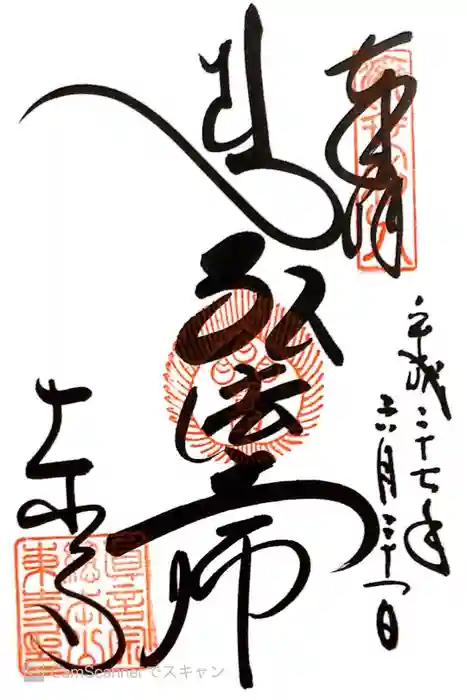 奉拝
平成二十七年
六月二十一日
弘法大師
東寺
真言宗
総本山
東寺
CamScannerでスキャン